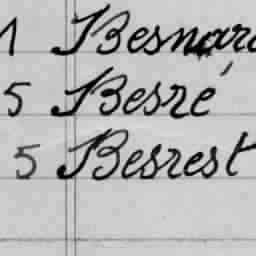 1 Besnard
5 Besré
5 Besrest